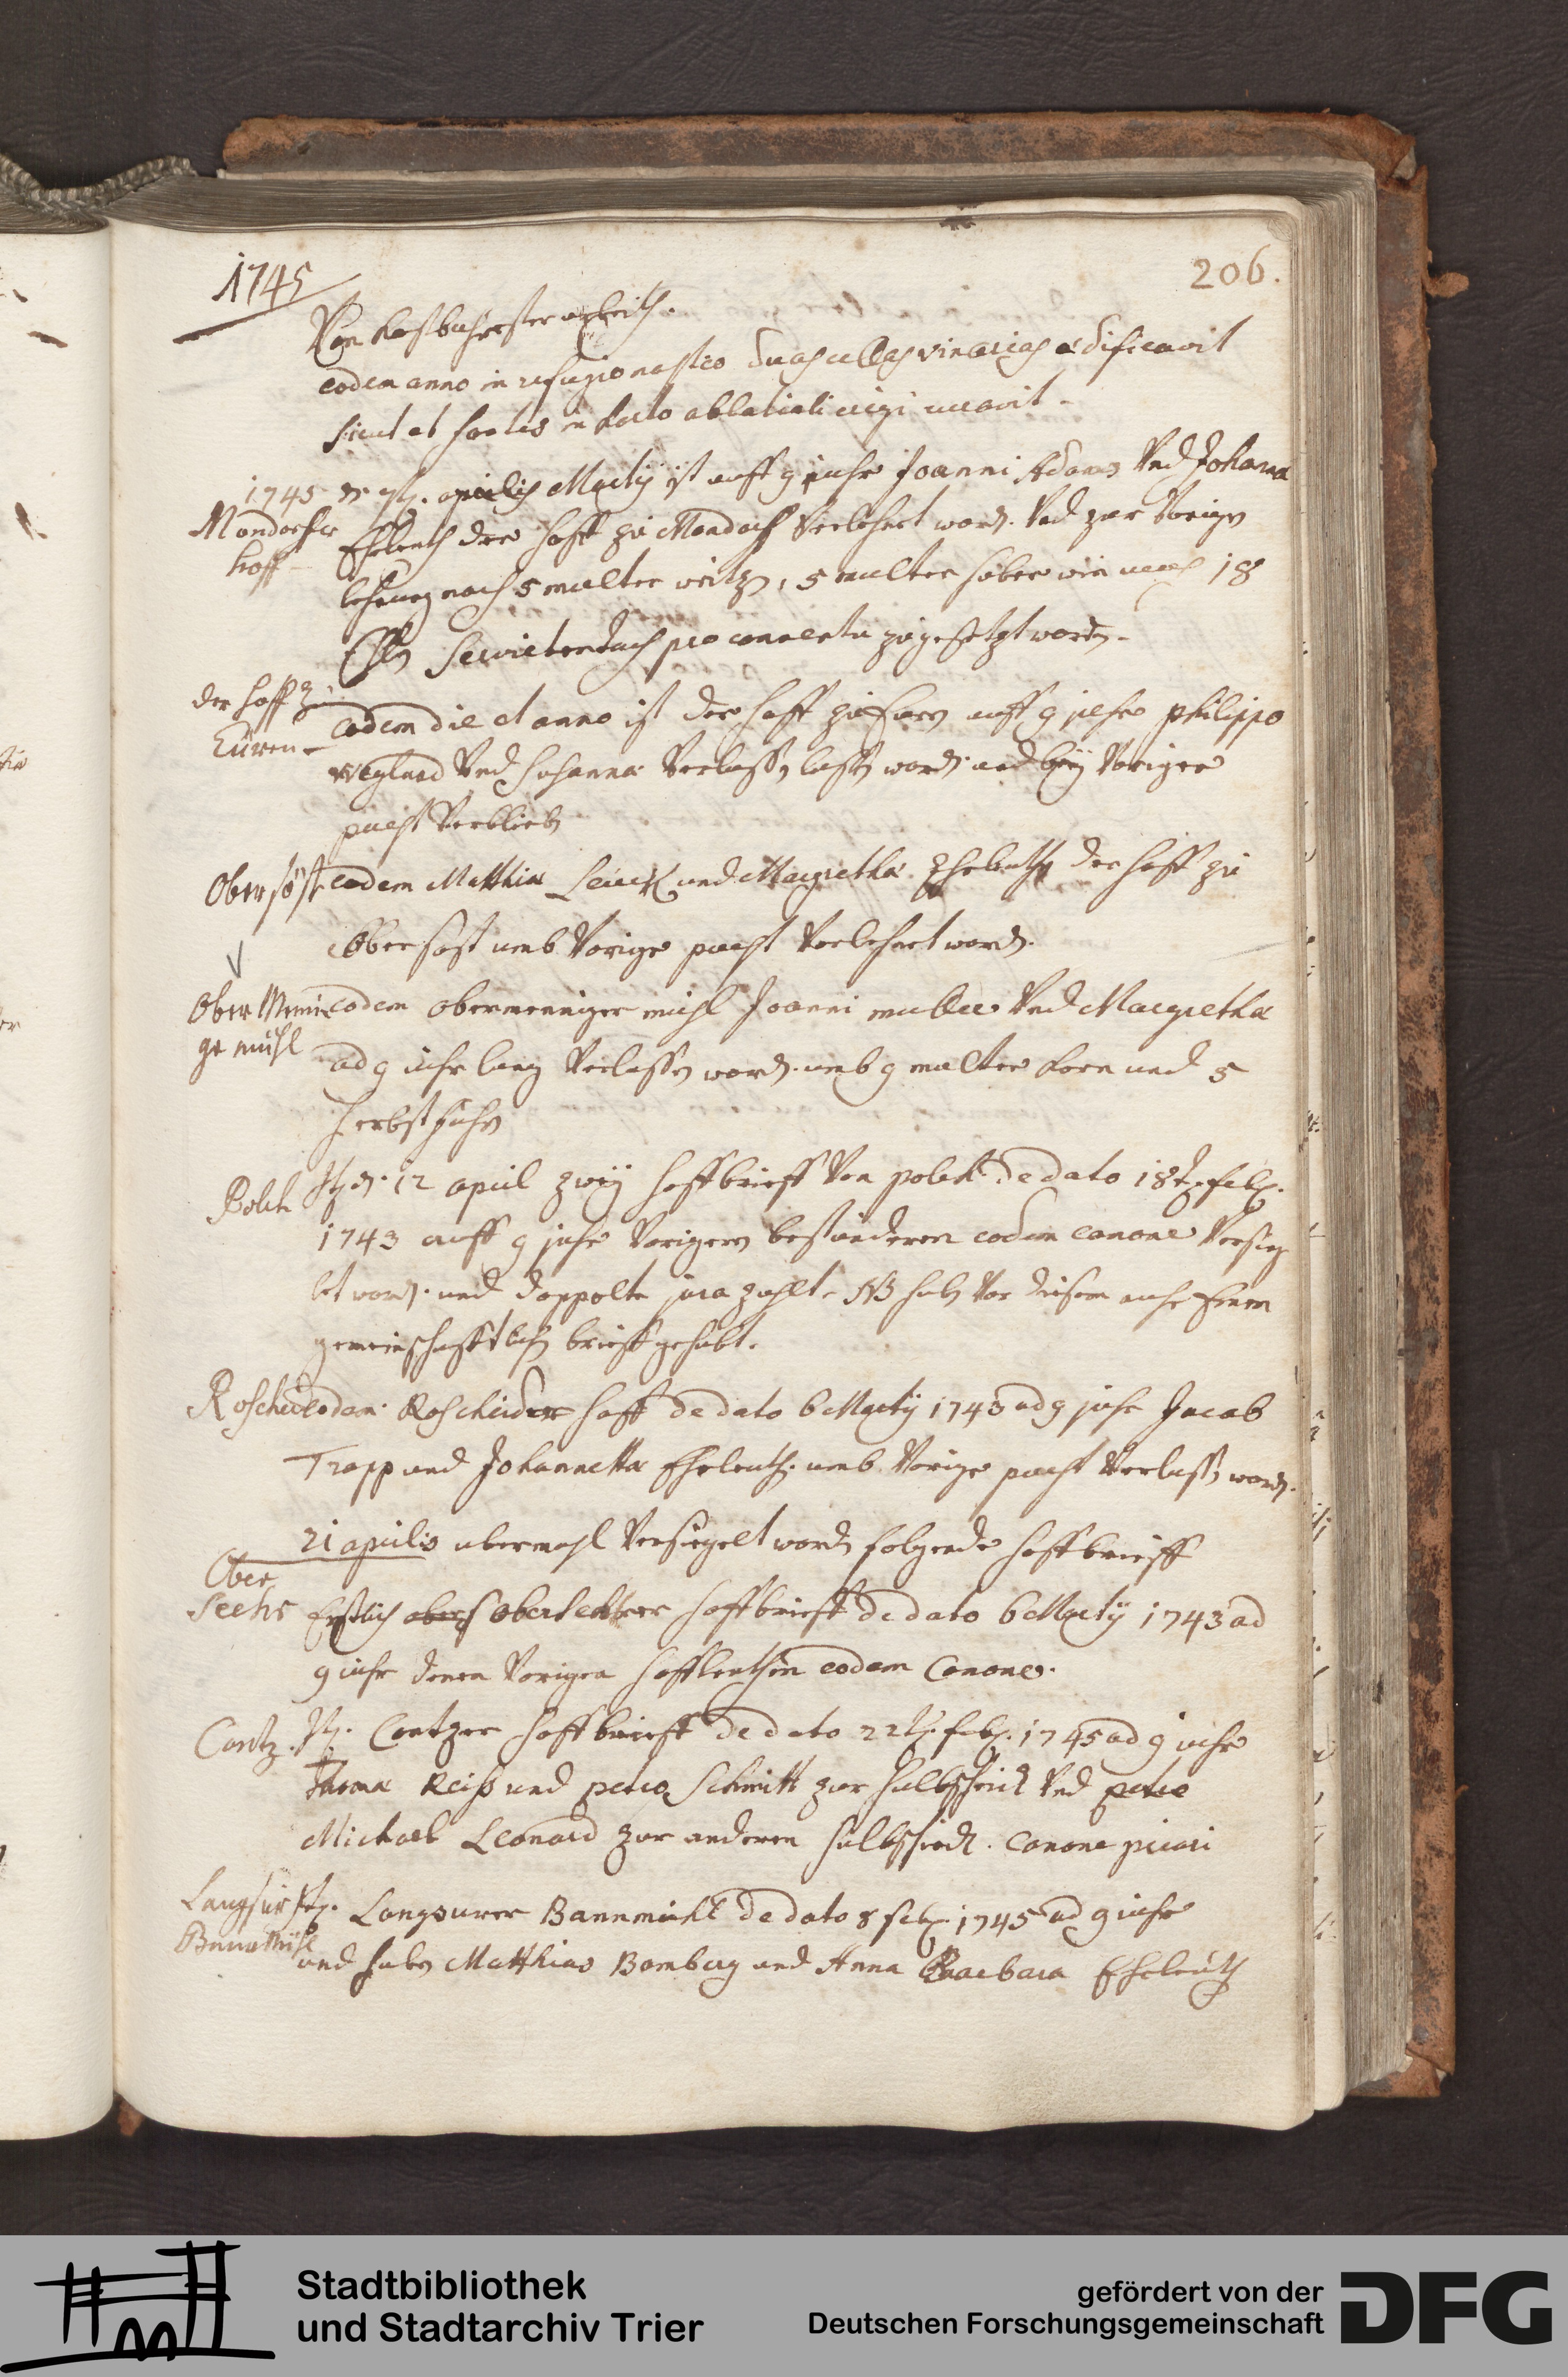 1745
206.
Von kostbahrester arbeith.
eodem anno in refugio nostro duas cellas vinarias ædificavit
sicut et hortos in horto abbatiali erigi curavit
1745 Martij ist auff 9 jahr Joanni Adams Und Johanna
Mondorfer
hoff
Eheleuth der hoff zu Mondorf Verlehnt word. Und zur Vorigen
lehnung noch 5 malter weitzen, 5 malter haber wie auch 18
Ehlen Servietentuch pro conventu zugesetzt worden.
der hoff zu
Euren
eodem die et anno ist der hoff zu Euren auff 9 jahr philippo
Weglnad Und Johanna Verlassen word. und bey Voriger
pacht Verblieben
Obersöst
eodem Matthiæ Leuck und Margretha Eheleuth der hoff zu
Obersost umb Vorige pacht Verlehnt word.
Ober Menni
ge mühl
eodem obermenniger mühl Joanni muller Und Margretha
ad 9 jahr lang Verlassen word. umb 9 malter korn und 5
herbst huhn
Polch
12 april zwey hoffbrieff Von polch de dato 18t. feb.
1743 auff 9 jahr Vorigern beständeren eodem canone Versieg
let word. und doppolte jura zahlt. NB haben Vor diesem auch Einen
gemeinschafftlichen brieff gehabt.
Roscheid
eodem Roscheider hoff de dato 6 Martij 1743 ad 9 jahr Jacob
Trapp und Johannetta Eheleuth. umb Vorige pacht Verlassen word.
21 aprilis abermahl Versiegelt worden folgende hoffbrieff
Ober
Seehr
Erstlich hoffbrieff de dato 6 Martij 1743 ad
9 jahr denen Vorigen hoffleuthen eodem Canone.
Contz.
It. Contzer hoffbrieff de dato 22t. feb. 1745 ad 9 jahr
Thoma Reiß und petro Schmitt zur halbscheid Und petro
Michael Leonard zur anderen halbschied. Canone priori
Langsur
Bannmühl
It. Langsurer Bannmühl de dato 8 feb. 1745 ad 9 jahr
und haben Matthias Bomberg und Anna Barbara Eheleuth
Stadtbibliothek
und Stadtarchiv Trier
gefördert von der
Deutschen Forschungsgemeinschaft
DFG